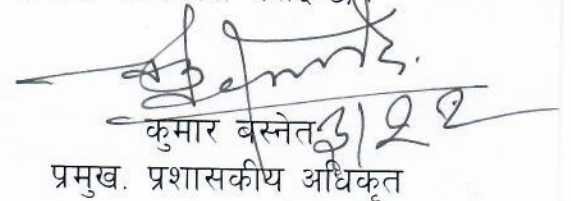 कुमार बस्नेत 3|22
प्रमुख. प्रशासकीय अधिकृत